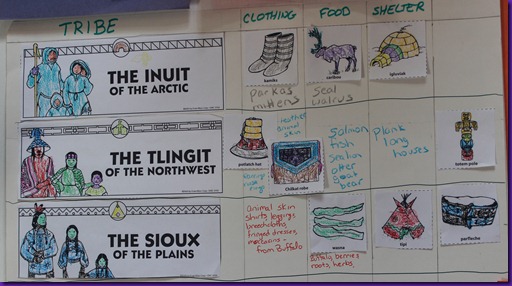 TRIBE
CLOTHING
FOOD
SHELTER
THE INUIT
OF THE ARCTIC
kamiks
caribou
igluviak
parkas
mittens
seal
walrus
THE TLINGIT
OF THE NORTHWEST
potlatch hat
leather
animal
skin
Chilkat robe
nose
rings
salmon
fish
sealion
otter
goat
bear
plank
long
houses
totem pole
THE SIOUX
OF THE PLAINS
animal skin
shirts, leggings,
breechcloths,
fringed dresses,
moccasins -
from buffalo
wasna
buffalo, berries
roots, herbs,
tipi
parfleche